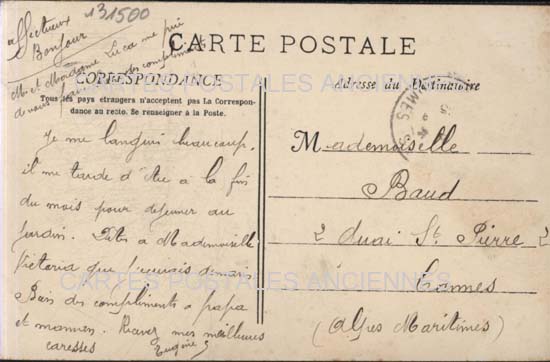 affectueux
Bonjour
131500
Mr et Madame Luca me prie
de vous faire des compliments
CARTE POSTALE
CORRESPONDANCE
Tous les pays étrangers n'acceptent pas La Correspon-
dance au recto. Se renseigner à la Poste.
Adresse du Destinataire
Je me langui beaucoup,
il me tarde d'être à la fin
du mois pour déjeuner au
jardin. Dites a Mademoiselle
Victoria que
Bien des compliments a papa
et maman. Recevez mes meilleures
caresses
Eugénie
Mademoiselle
Baud
2 Quai St Pierre 2
Cannes
(Alpes Maritimes)
CARTES POSTALES ANCIENNES
CARTES POSTALES ANCIENNES